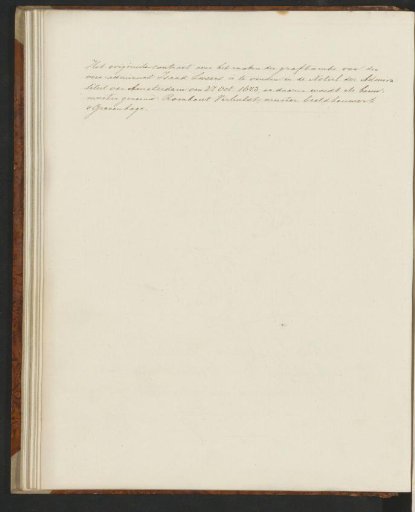 Het originele contract over het maken der graftombe van den
vice-admiraal Isaac Sweers is te vinden in de Notul. der Admira-
liteit van Amsterdam van 27 Oct. 1673, en daarin wordt als bouw-
meester genoemd Rombout Verhulst, meester beeldhouwer te
s Gravenhage.